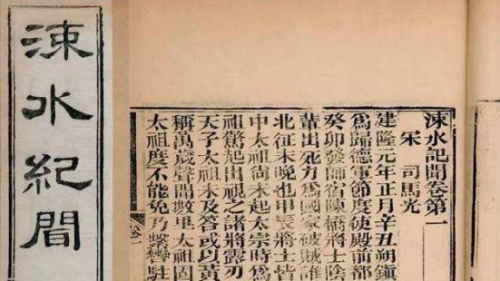 涑水紀聞
涑水記聞卷第一
宋 司馬光
建隆元年正月辛丑朔鎮
爲歸德軍節度使殿前都
癸卯發師宿陳橋將士陰
輩出死力爲國家破賊誰
北征未晚也甲辰將士皆
中太祖尚未起太宗時爲
祖驚起出視之諸將露刃
天子太祖未及答或以黃
稱萬歲聲聞數里太祖固
太祖度不能免乃繫轡駐
卷一